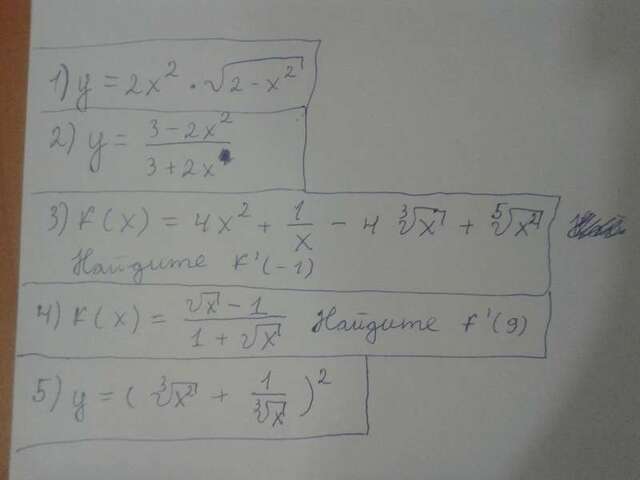 1) y = 2x² · √(2 - x²)
2) y = (3 - 2x²)/(3 + 2x)
3) f(x) = 4x² + 1/x - 4 ∛x + ⁵√x²
Найдите f'(-1)
4) f(x) = (√x - 1)/(1 + √x) Найдите f'(9)
5) y = (∛x² + 1/∛x)²